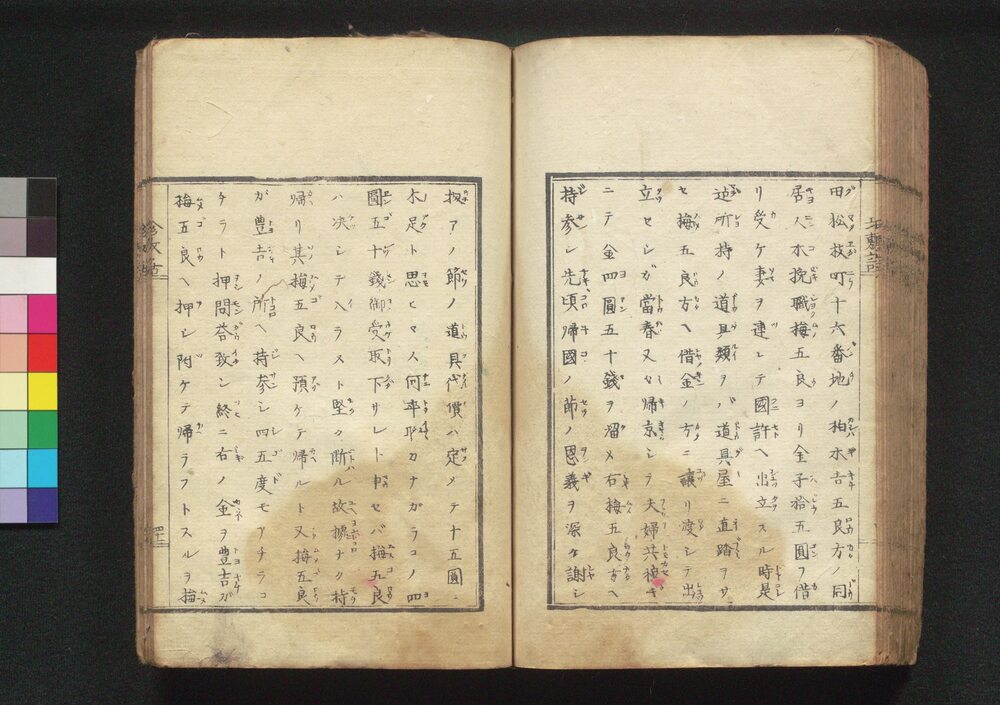 田松枝町十六番地ノ柏木吉五良方ノ同
居人木挽職梅五良ヨリ金子拾五圓ヲ借
リ受ケ妻ヲ連レテ國許ヘ出立スル時是
迠所持ノ道具類ヲバ道具屋ニ直踏ヲサ
セ梅五良方ヘ借金ノ方ニ讓リ渡シテ出
立セシガ當春又々帰京シテ夫婦共稼キ
ニテ金四圓五十錢ヲ溜メ右梅五良方ヘ
持参シ先頃帰國ノ節ノ恩義ヲ深ク謝シ
扨アノ節ノ道具代價ハ定メテ十五圓ニ
不足ト思ヒマス何卒耻カナガラコノ四
圓五十錢御受取下サレト申セバ梅五良
ハ决シテ入ラスト堅ク断ル故據ナク持
帰リ其梅五良ヘ預ケテ帰ルト又梅五良
ガ豊吉ノ所ヘ持参シ四五度モアチラコ
チラト押問答致シ終ニ右ノ金ヲ豊吉ガ
梅五良ヘ押シ附ケテ帰ラフトスルヲ梅